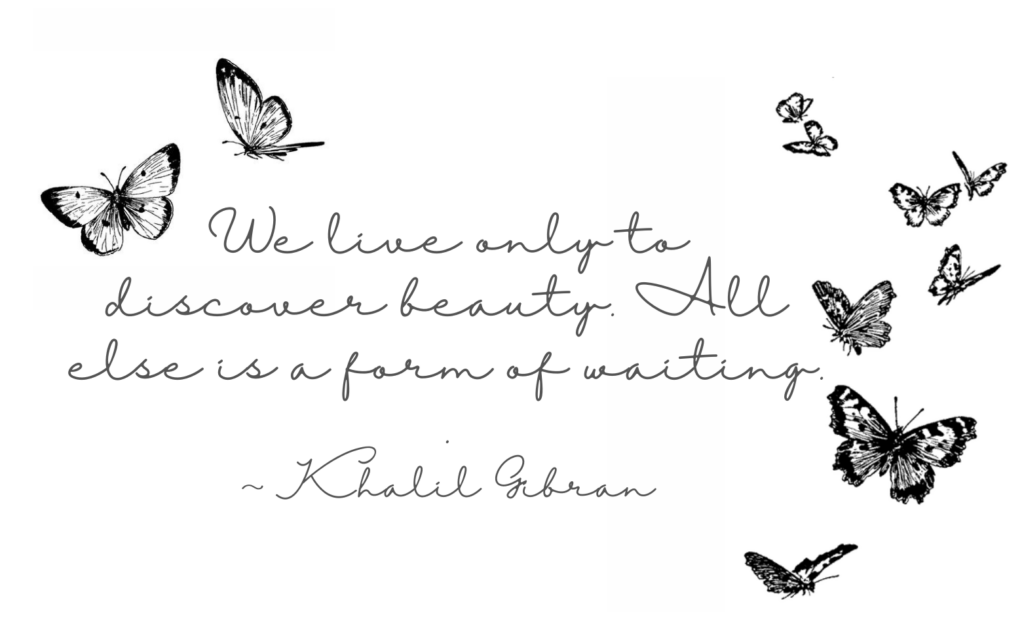 We live only to
discover beauty. All
else is a form of waiting.
~ Khalil Gibran